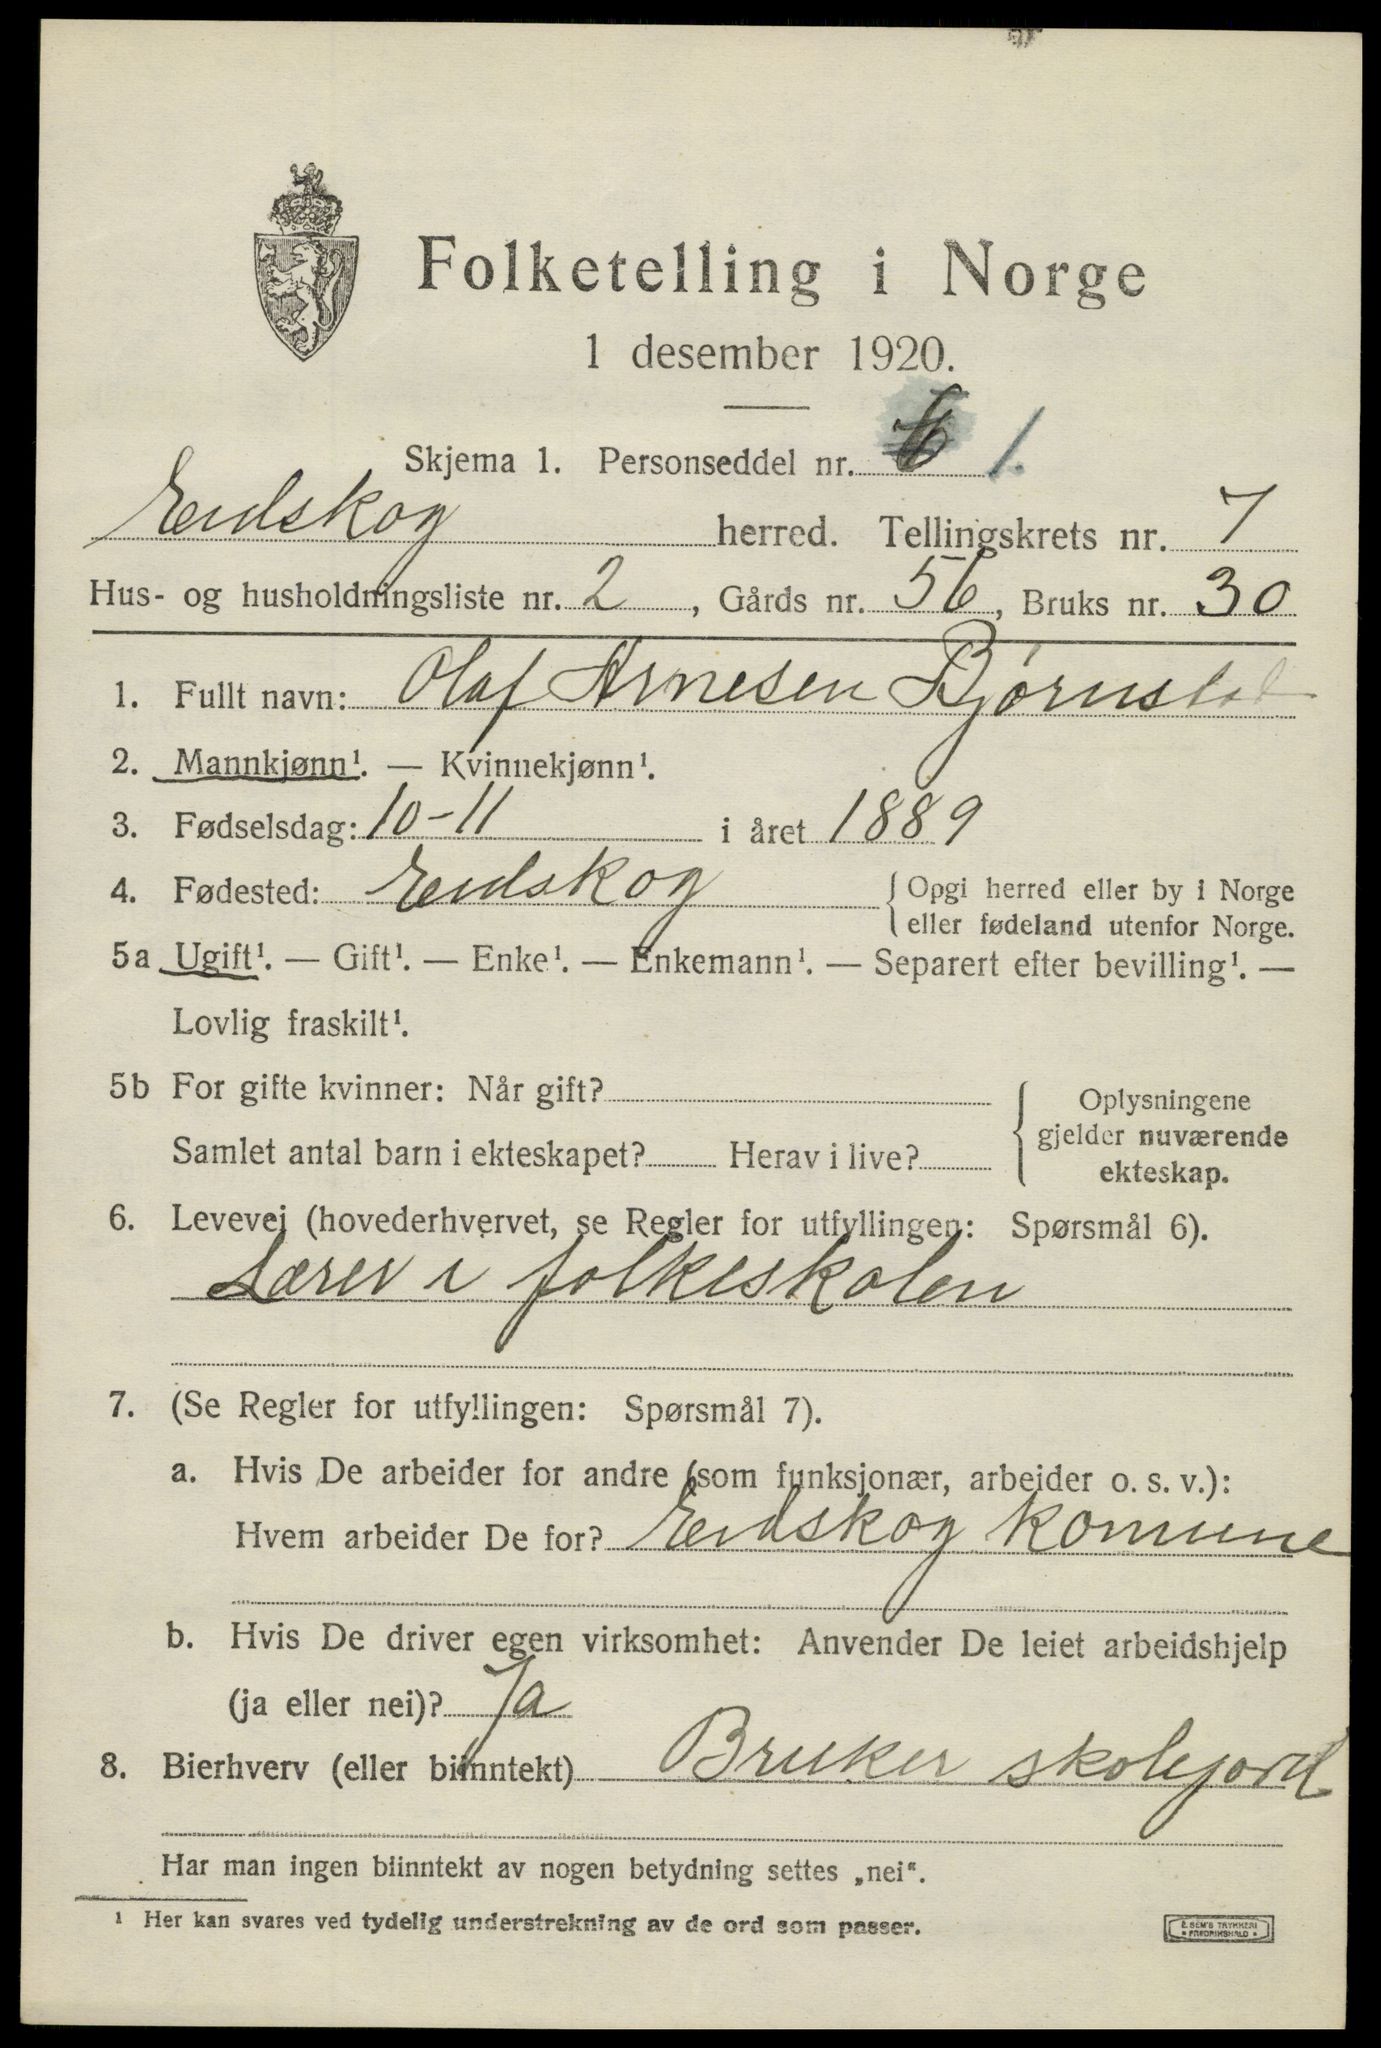 Folketelling i Norge
1 desember 1920.
Skjema 1. Personseddel nr. 1.
Eidskog herred. Tellingskrets nr. 7
Hus- og husholdningsliste nr. 2, Gårds nr. 56, Bruks nr. 30
1. Fullt navn: Olaf Arnesen Bjørnstad
2. Mannkjønn¹. — Kvinnekjønn¹.
3. Fødselsdag: 10-11 i året 1889
4. Fødested: Eidskog { Opgi herred eller by i Norge
eller fødeland utenfor Norge.
5a Ugift¹. — Gift¹. — Enke¹. — Enkemann¹. — Separert efter bevilling¹. —
Lovlig fraskilt¹.
5b For gifte kvinner: Når gift?
Samlet antal barn i ekteskapet? Herav i live?
{ Oplysningene
gjelder nuværende
ekteskap.
6. Levevei (hovederhvervet, se Regler for utfyllingen: Spørsmål 6).
Lærer i folkeskolen
7. (Se Regler for utfyllingen: Spørsmål 7).
a. Hvis De arbeider for andre (som funksjonær, arbeider o. s. v.):
Hvem arbeider De for? Eidskog komune
b. Hvis De driver egen virksomhet: Anvender De leiet arbeidshjelp
(ja eller nei)? Ja
8. Bierhverv (eller biinntekt) Bruker skolejord
Har man ingen biinntekt av nogen betydning settes „nei“.
¹ Her kan svares ved tydelig understrekning av de ord som passer.
E. SEM'S TRYKKERI
* FREDRIKSHALD *